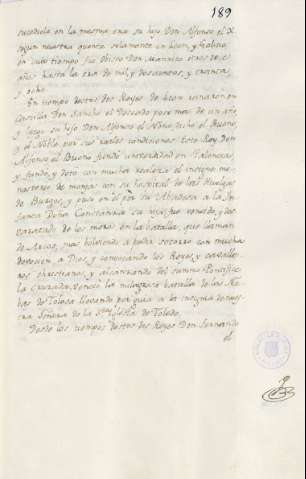 189
sucediole en la mesma era su hijo Don Alfonso el X
segun nuestra quenta solamente en Leon, y Galicia
en cuio tiempo fue Obispo Don Manrrico
años hasta la era de mil, y descientos, y quarenta,
y ocho
En tiempo destos dos Reyes de Leon reinaron en
Castilla Don Sancho el Deseado poco mas de un año
y luego su hijo Don Alfonso el Niño, dicho el Bueno,
y el Noble por sus reales condiciones. Este Rey Don
Alfonso el Bueno fundó universidad en Palencia,
y fundó, y doto con mucha realeza el insigne mo-
nasterio de monjas con su hospital de las Huelgas
de Burgos, y puso en el por su Abadesa a la In-
fanta Doña Constanza su hija, fue rompido, y des-
varatado de los moros en la batalla, que llaman
de Arcos, mas bolviendo a pedir socorro con mucha
devocion, a Dios, y convocando los Reyes, y cavalle-
ros christianos, y alcanzando del summo Pontifice
la Cruzada, vencio la milagrosa batalla de las Na-
bas de Tolosa llevando por guia a la insignia de nues-
tra Señora de la Sta Iglesia de Toledo.
Desde los tiempos destos dos Reyes Don Fernando
el